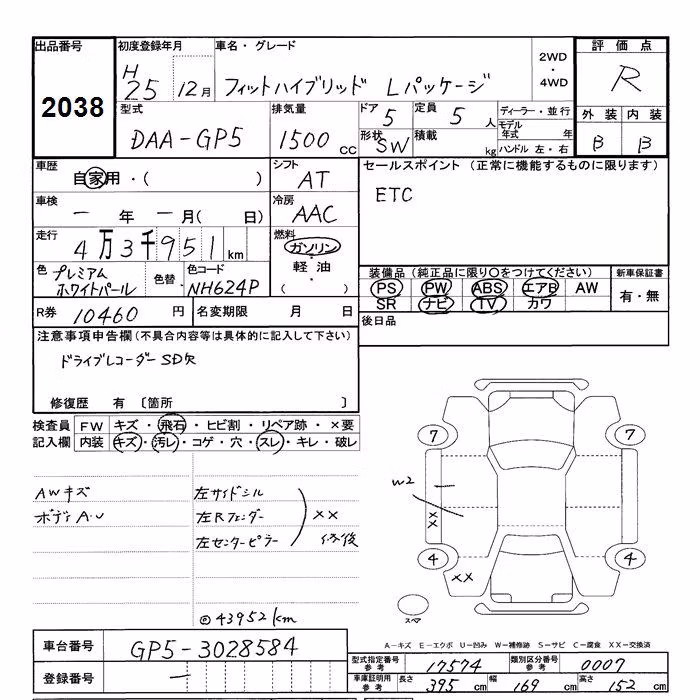 出品番号 初度登録年月 車名・グレード 2WD・4WD 評価点
2038 H25 12月 フィットハイブリッド Lパッケージ R
型式 排気量 ドア 5 定員 5人 ディーラー・並行 外装 内装
DAA-GP5 1500cc 形状 SW 積載 kg モデル年式 年 B B
ハンドル 左・右
車歴 シフト セールスポイント (正常に機能するものに限ります)
自家用・( ) AT ETC
車検 冷房
ー年 ー月( 日) AAC
走行 燃料
4万3千951km ガソリン・軽油・( )
色 プレミアムホワイトパール 色替 色コード NH624P
装備品(純正品に限り○をつけてください) 新車保証書
PS PW ABS エアB AW 有・無
SR ナビ TV カワ
R券 10460円 名変期限 月 日 後日品
注意事項申告欄(不具合内容等は具体的に記入して下さい)
ドライブレコーダーSD欠
修復歴 有 〔箇所 〕
検査員 FW キズ・飛石・ヒビ割・リペア跡・×要
記入欄 内装 キズ・汚レ・コゲ・穴・スレ・キレ・破レ
AWキズ 左サイドシル
ボディA・U 左Rフェンダー ×× 修後
左センターピラー
◎43952km
7 7
W2
××
4 4
××
スペア
A-キズ E-エクボ U-凹み W-補修跡 S-サビ C-腐食 XX-交換済
車台番号 GP5-3028584
登録番号 ー
型式指定番号 参考 17574 類別区分番号 参考 0007
車庫証明用 参考 長さ 395cm 幅 169cm 高さ 152cm